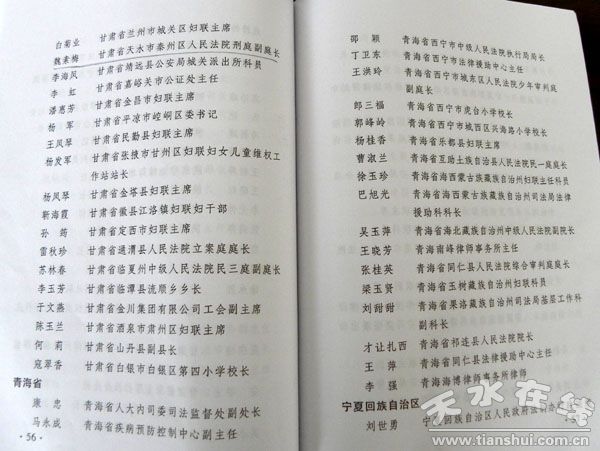 白菊业 甘肃省兰州市城关区妇联主席
魏素梅 甘肃省天水市秦州区人民法院刑庭副庭长
李海凤 甘肃省靖远县公安局城关派出所科员
李虹 甘肃省嘉峪关市公证处主任
潘惠芳 甘肃省金昌市妇联主席
杨军 甘肃省平凉市崆峒区委书记
王凤琴 甘肃省民勤县妇联主席
杨发军 甘肃省张掖市甘州区妇联妇女儿童维权工
作站站长
杨凤琴 甘肃省金塔县妇联主席
靳海霞 甘肃省徽县江洛镇妇联干部
孙筠 甘肃省定西市妇联主席
雷秋珍 甘肃省通渭县人民法院立案庭庭长
苏林春 甘肃省临夏州中级人民法院民三庭副庭长
李玉芳 甘肃省临潭县流顺乡乡长
于文燕 甘肃省金川集团有限公司工会副主席
陈玉兰 甘肃省酒泉市肃州区妇联主席
何莉 甘肃省山丹县副县长
寇翠香 甘肃省白银市白银区第四小学校长
青海省
康忠 青海省人大内司委司法监督处副处长
马永成 青海省疾病预防控制中心副主任
·56·
邵颖 青海省西宁市中级人民法院执行局局长
丁卫东 青海省西宁市法律援助中心主任
王洪玲 青海省西宁市城东区人民法院少年审判庭
副庭长
郎三福 青海省西宁市虎台小学校长
郭峰岭 青海省西宁市城西区兴海路小学校长
杨桂香 青海省乐都县妇联主席
曹淑兰 青海省互助土族自治县人民法院民一庭庭长
徐玉珍 青海省海西蒙古族藏族自治州妇联主任科员
巴旭光 青海省海西蒙古族藏族自治州司法局法律
援助科科长
吴玉萍 青海省海北藏族自治州中级人民法院副院长
王晓芳 青海南峰律师事务所主任
张桂英 青海省同仁县人民法院综合审判庭庭长
梁玉贤 青海省玉树藏族自治州妇联科员
刘甜甜 青海省果洛藏族自治州司法局基层工作科
副科长
才让扎西 青海省祁连县人民法院院长
王萍 青海省同仁县法律援助中心主任
李强 青海海博律师事务所律师
宁夏回族自治区
刘世勇 宁夏回族自治区人民政府法制办
天水在线
www.tianshui.com.cn